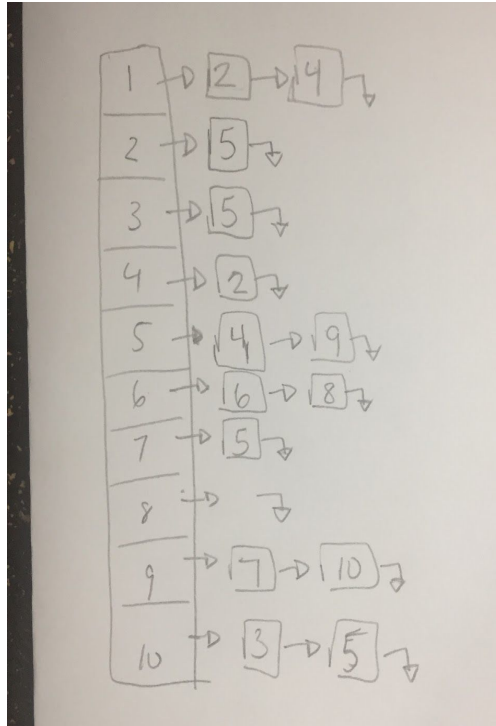 1 2 4
2 5
3 5
4 2
5 4 9
6 6 8
7 5
8
9 7 10
10 3 5